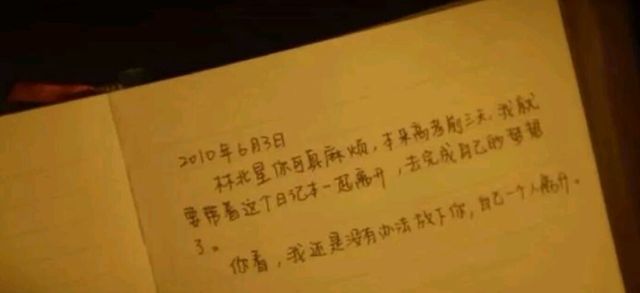 2010年6月3日
林北星你可真麻烦，本来高考前三天，我就
要带着这个日记本一起离开，去完成自己的梦想
了。
你看，我还是没有办法放下你，自己一个人离开。